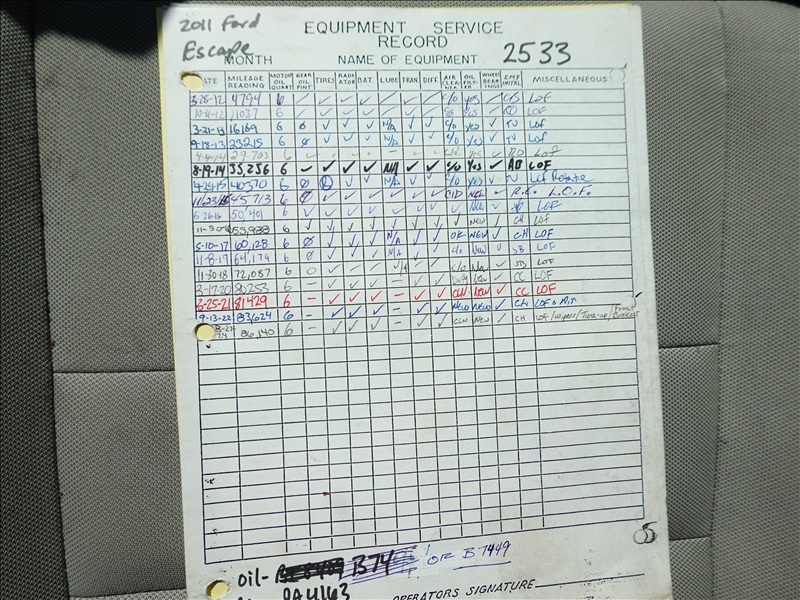 2011 Ford
Escape
EQUIPMENT SERVICE
RECORD
MONTH NAME OF EQUIPMENT 2533
DATE MILEAGE READING MOTOR OIL QUART GEAR OIL PINT TIRES RADI ATOR BAT. LUBE TRAN. DIFF. AIR CLEA- NER OIL FILT- ER WHEEL BEAR- INGS EMP. INITIAL MISCELLANEOUS
3-28-12 4794 6 LOF
11037 6 LOF
3-21-13 16169 6 ø ✓ ✓ ✓ N/A ✓ ✓ c/o yes ✓ TV LOF
9-18-13 23215 6 ø ✓ ✓ ✓ N/A ✓ ✓ c/o yes ✓ TV LOF
4-4-14 29,703 6 LOF
8-19-14 35,256 6 – ✓ ✓ ✓ N/A ✓ ✓ c/o Yes ✓ AB LOF
4-25-15 40370 6 ø ✓ ✓ N/A ✓ ✓ c/o Yes ✓ TV Rotate
11/23/15 45,713 6 ø ✓ ✓ ✓ ✓ ✓ ✓ ✓ L.O.F.
6-26-16 50,401 6 ✓ ✓ ✓ ✓ ✓ ✓ ✓ NEW ✓ LOF
53,938 6 ✓ ✓ ✓ ✓ ✓ ✓ ✓ NEW ✓ CH LOF
5-10-17 60,128 6 ø ✓ ✓ ✓ N/A ✓ ✓ OK NEW ✓ CH LOF
11-8-17 64,179 6 ø ✓ ✓ ✓ N/A ✓ ✓ c/o New ✓ SB LOF
11-30-18 72,087 6 O ✓ ✓ ✓ c/o ✓ SB LOF
3-17-20 80253 6 – ✓ ✓ ✓ – ✓ ✓ ✓ CC LOF
81429 6 – ✓ ✓ ✓ – ✓ ✓ CLN NEW ✓ CC LOF
9-13-22 83,624 6 – ✓ ✓ ✓ – ✓ ✓ NEW NEW ✓ CH LOF &
86,140 6 – ✓ ✓ ✓ – ✓ ✓ CLN NEW ✓ CH LOF/Wipers/Tune-up/Front
oil- B74 OR B7449
OPERATORS SIGNATURE